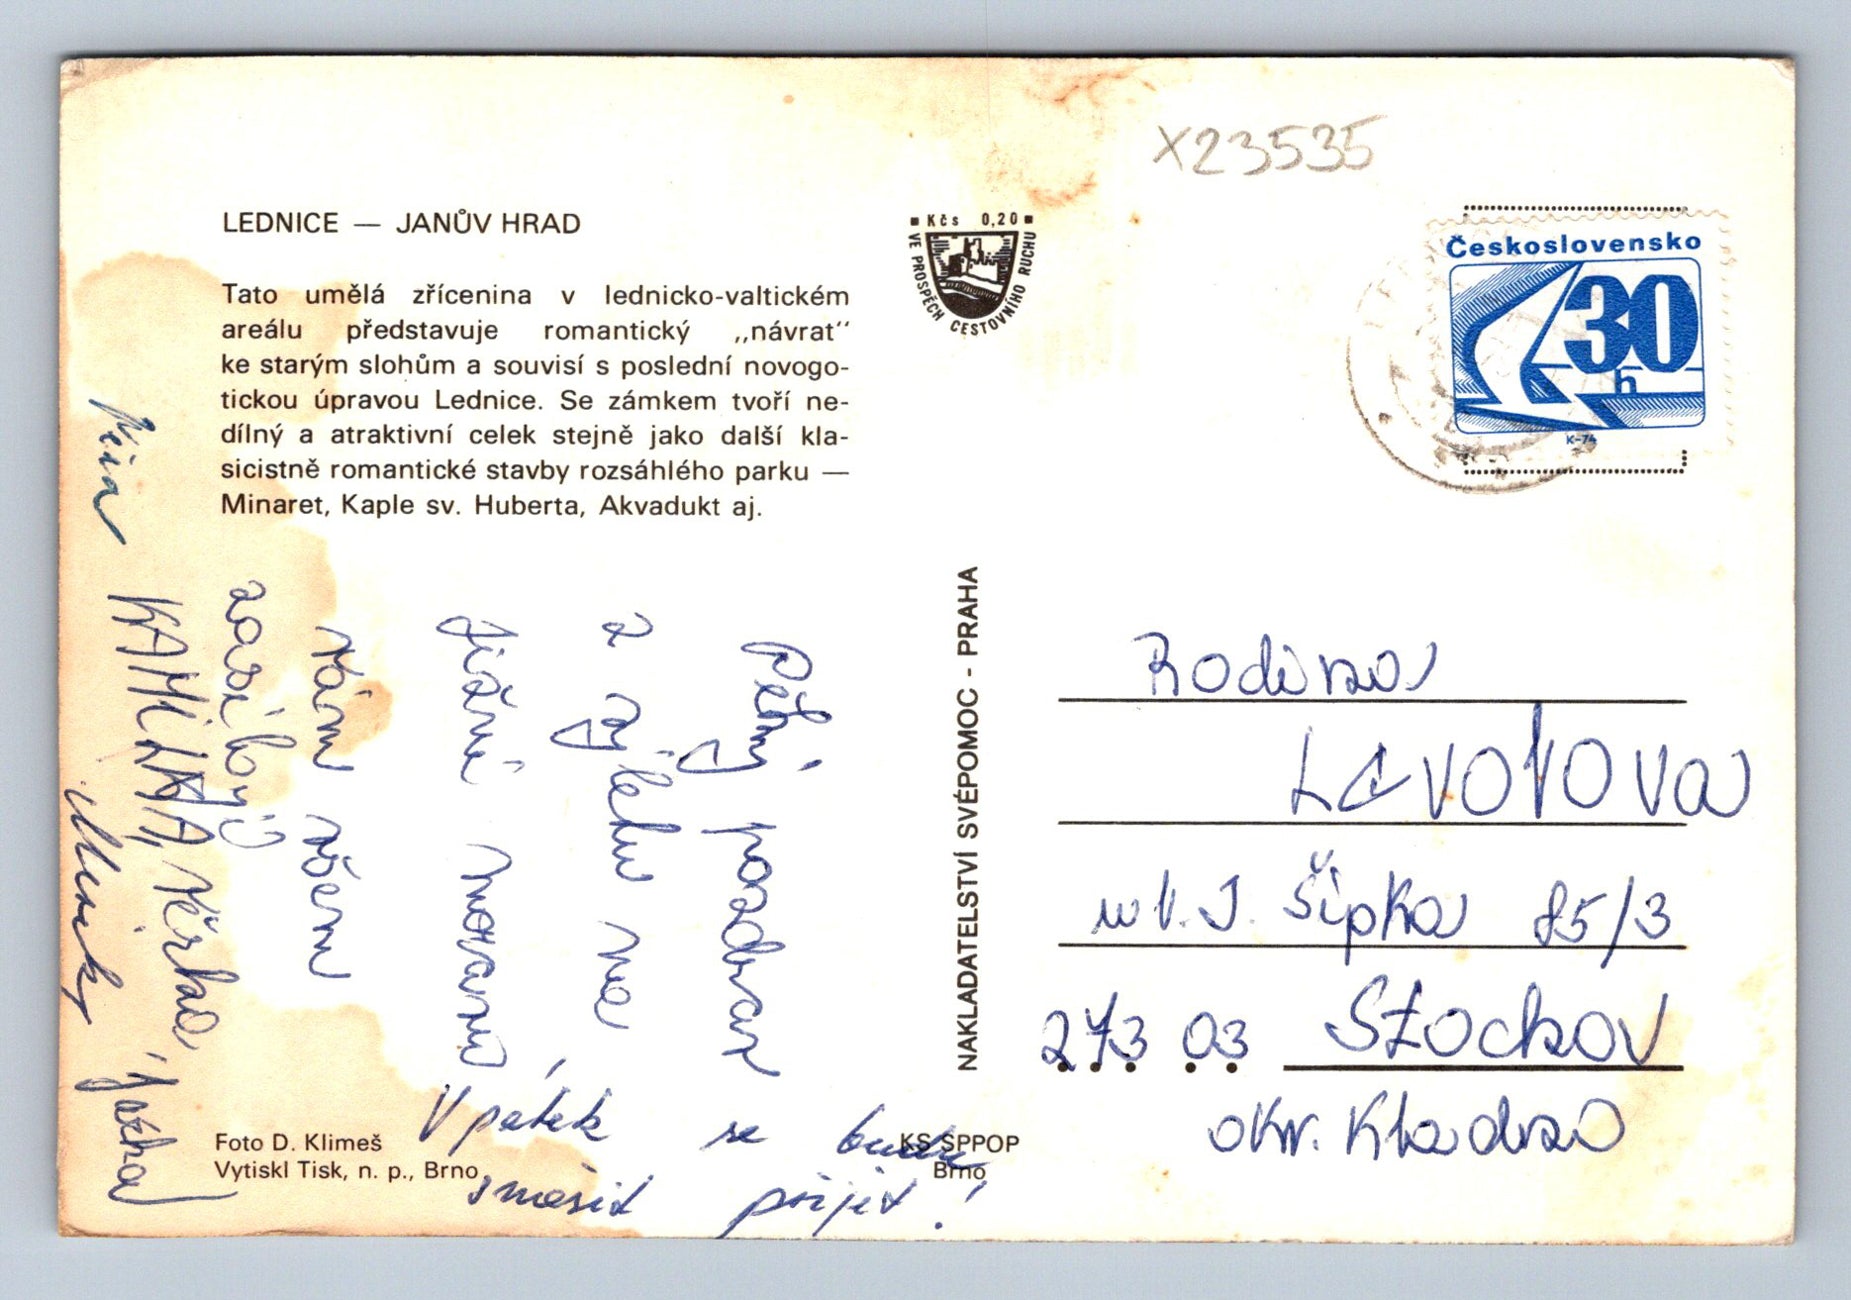 X23535
LEDNICE — JANŮV HRAD
Tato umělá zřícenina v lednicko-valtickém
areálu představuje romantický „návrat“
ke starým slohům a souvisí s poslední novogo-
tickou úpravou Lednice. Se zámkem tvoří ne-
dílný a atraktivní celek stejně jako další kla-
sicistně romantické stavby rozsáhlého parku —
Minaret, Kaple sv. Huberta, Akvadukt aj.
Kčs 0,20
VE PROSPĚCH CESTOVNÍHO RUCHU
Československo
30
h
K-74
Pěkný pozdrav
z výletu na
jižní moravu,
Vám všem
zasílají
KAMILA, Věrka,
Mirek
V pátek se budu
snažit přijet!
NAKLADATELSTVÍ SVÉPOMOC - PRAHA
Rodina
ul. J. Šípka 85/3
273 03 Stochov
okr. Kladno
Foto D. Klimeš
Vytiskl Tisk, n. p., Brno
KS SPPOP
Brno